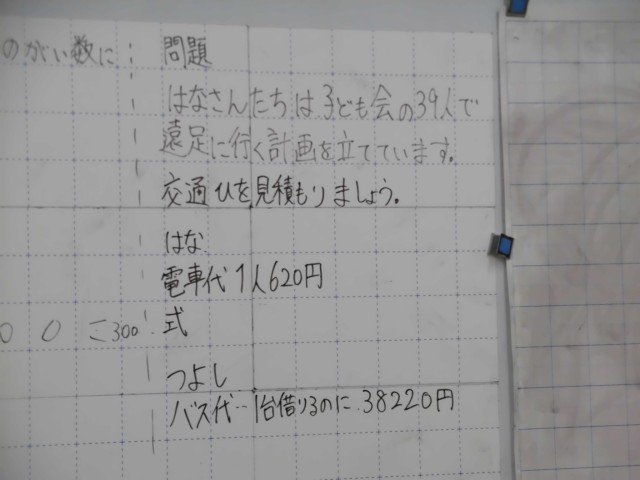 のがい数に
問題
はなさんたちは子ども会の39人で
遠足に行く計画を立てています。
交通ひを見積もりましょう。
はな
電車代 1人620円
00=300
式
つよし
バス代…1台借りるのに 38220円